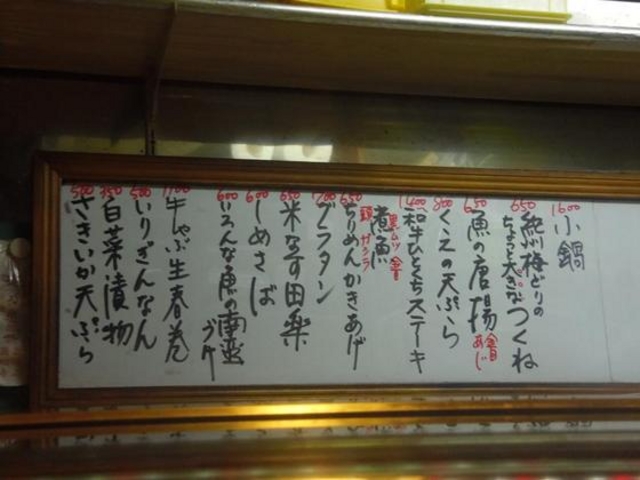 1600
小鍋
650
紀州梅どりの
ちょっと大きな
つくね
650
魚の唐揚
金目
あじ
800
くえの天ぷら
1400
和牛ひとくちステーキ
煮魚
黒ムツ
金目
頭
ガシラ
650
ちりめんかきあげ
700
グラタン
650
米なす田楽
600
しめさば
600
いろんな魚の南蛮
づけ
1100
牛しゃぶ生春巻
500
いりぎんなん
350
白菜漬物
500
さきいか天ぷら